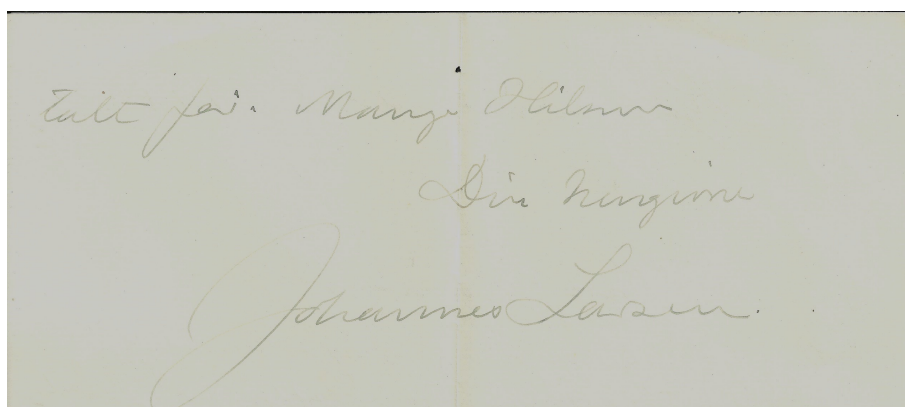 talt for. Mange Hilsner
Din hengivne
Johannes Larsen.